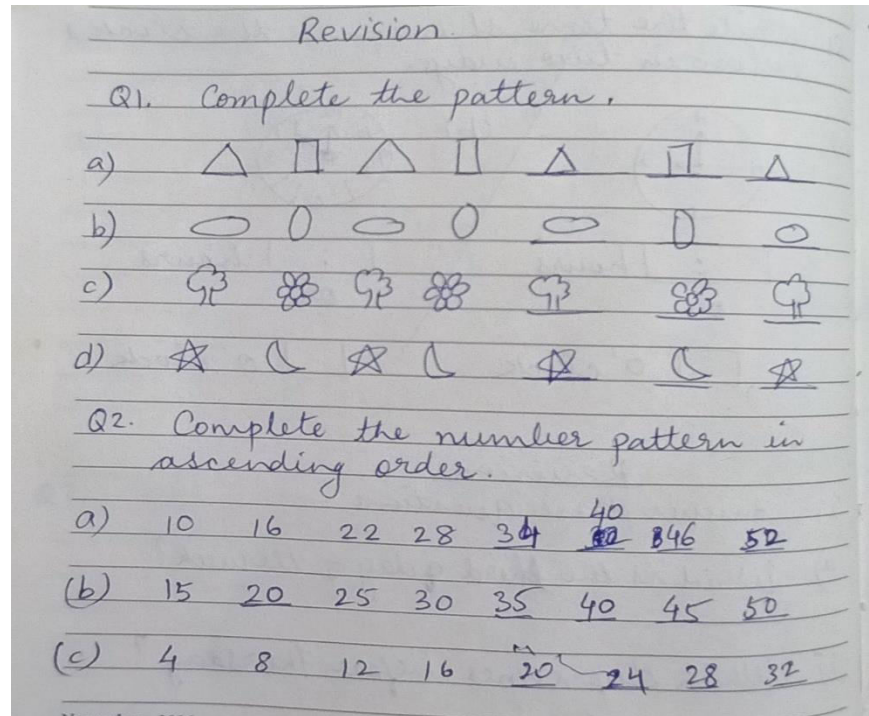 Revision.
Q1. Complete the pattern.
a)
b)
c)
d)
Q2. Complete the number pattern in
ascending order.
a) 10 16 22 28 34 40 46 52
(b) 15 20 25 30 35 40 45 50
(c) 4 8 12 16 20 24 28 32